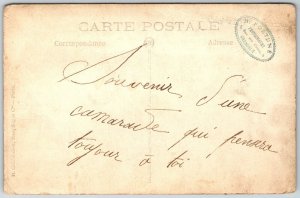 CARTE POSTALE
Correspondance
Adresse
Souvenir d'une
camarade qui pensra
toujour à toi